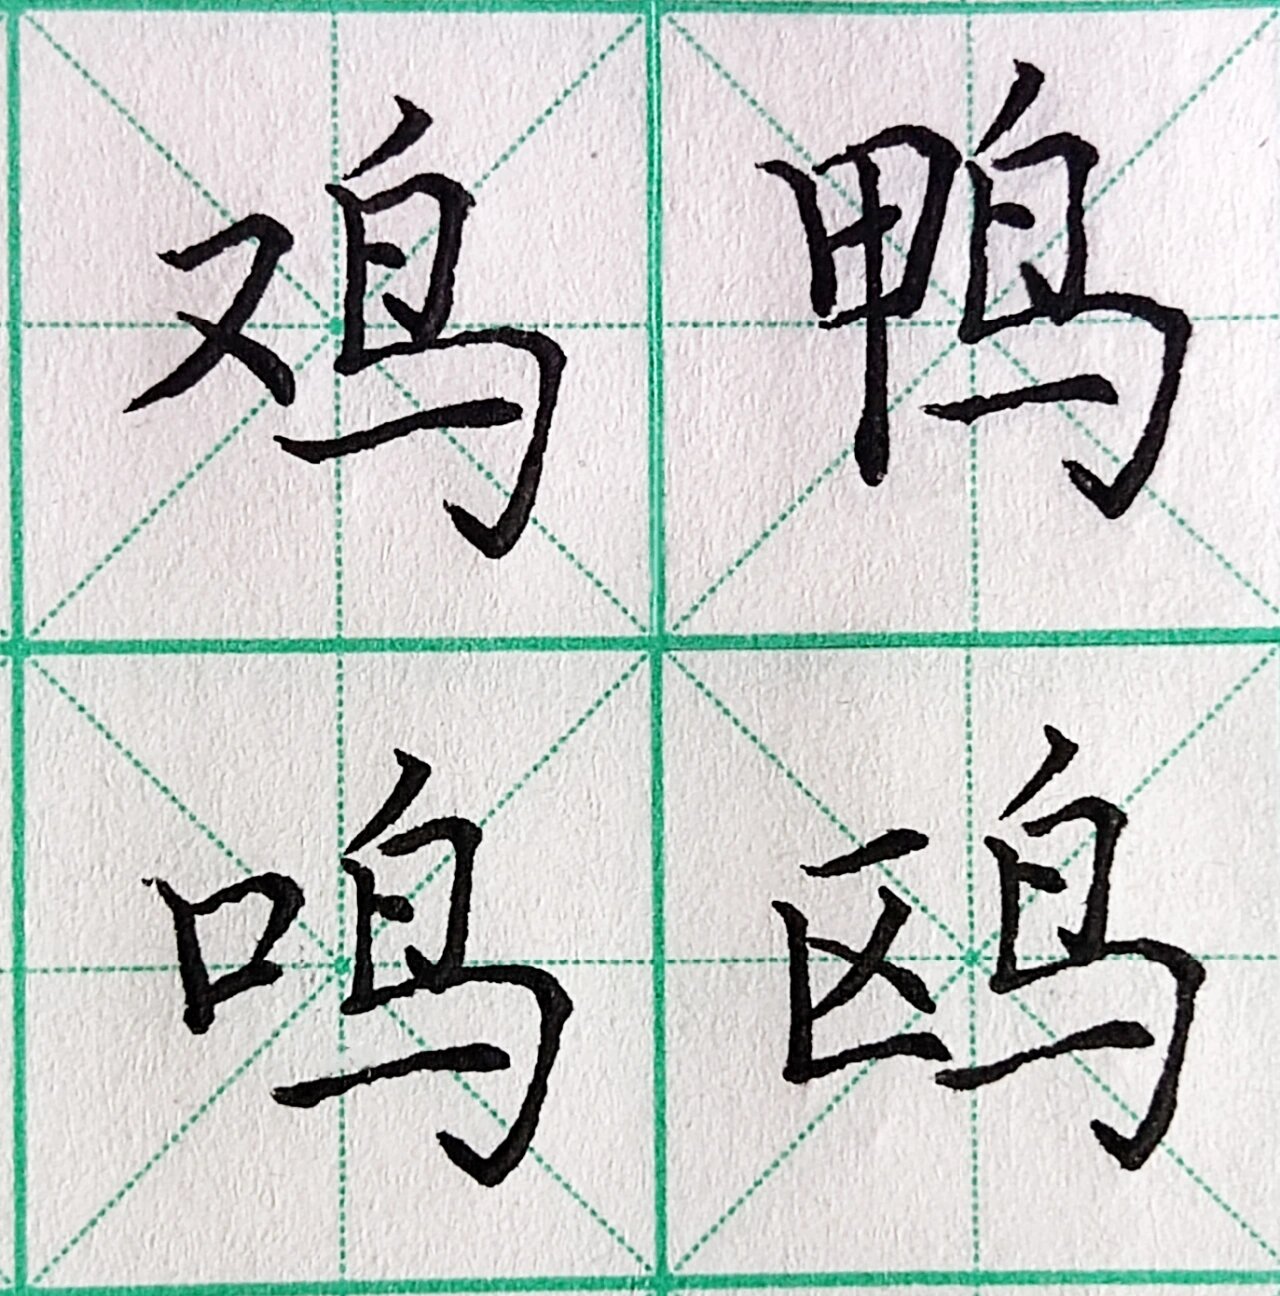 鸡鸭
鸣鸥